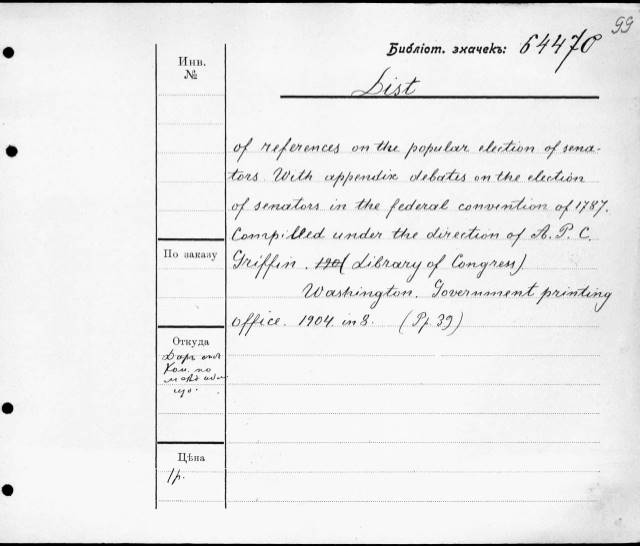 99
Библіот. значекъ: 64470
Инв.
№
List
of references on the popular election of sena-
tors. With appendix debates on the election
of senators in the federal convention of 1787.
Compilled under the direction of A. P. C.
По заказу
Griffin. (Library of Congress)
Washington. Government printing
office. 1904. in 8. (Pp. 39)
Откуда
Даръ
Ком. по
Цѣна
1р.